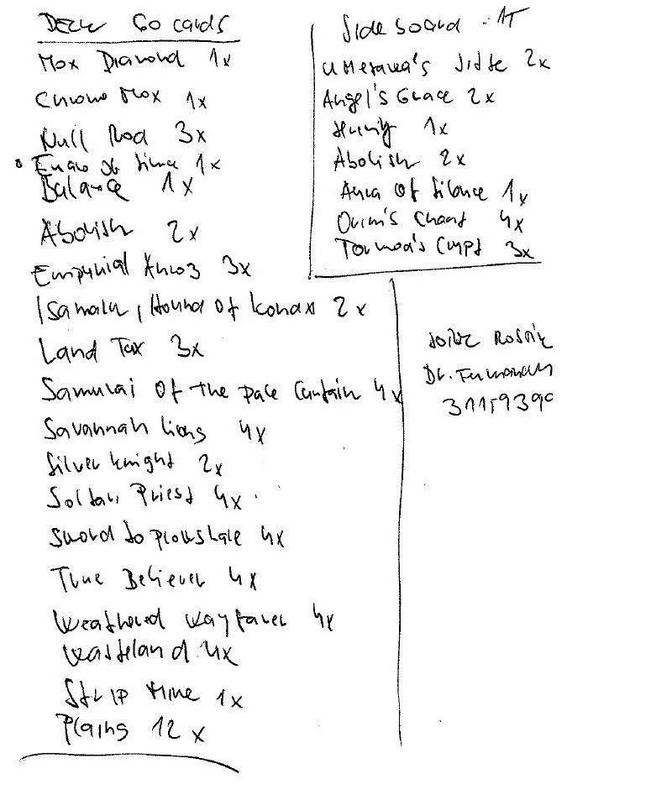 Deck 60 cards
Mox Diamond 1x
Chrome Mox 1x
Null Rod 3x
1x
Balance 1x
Abolish 2x
3x
Isamaru, Hound of Konda 2x
Land Tax 3x
Samurai of the pale Curtain 4x
Savannah Lions 4x
Silver knight 2x
Soltari Priest 4x
Sword to Plowshare 4x
True Believer 4x
Weathered Wayfarer 4x
Wasteland 4x
Strip Mine 1x
Plains 12x
Sideboard
Umezawa's Jitte 2x
Angel's Grace 2x
1x
Abolish 2x
Aura of Silence 1x
Orim's Chant 4x
Tormod's Crypt 3x